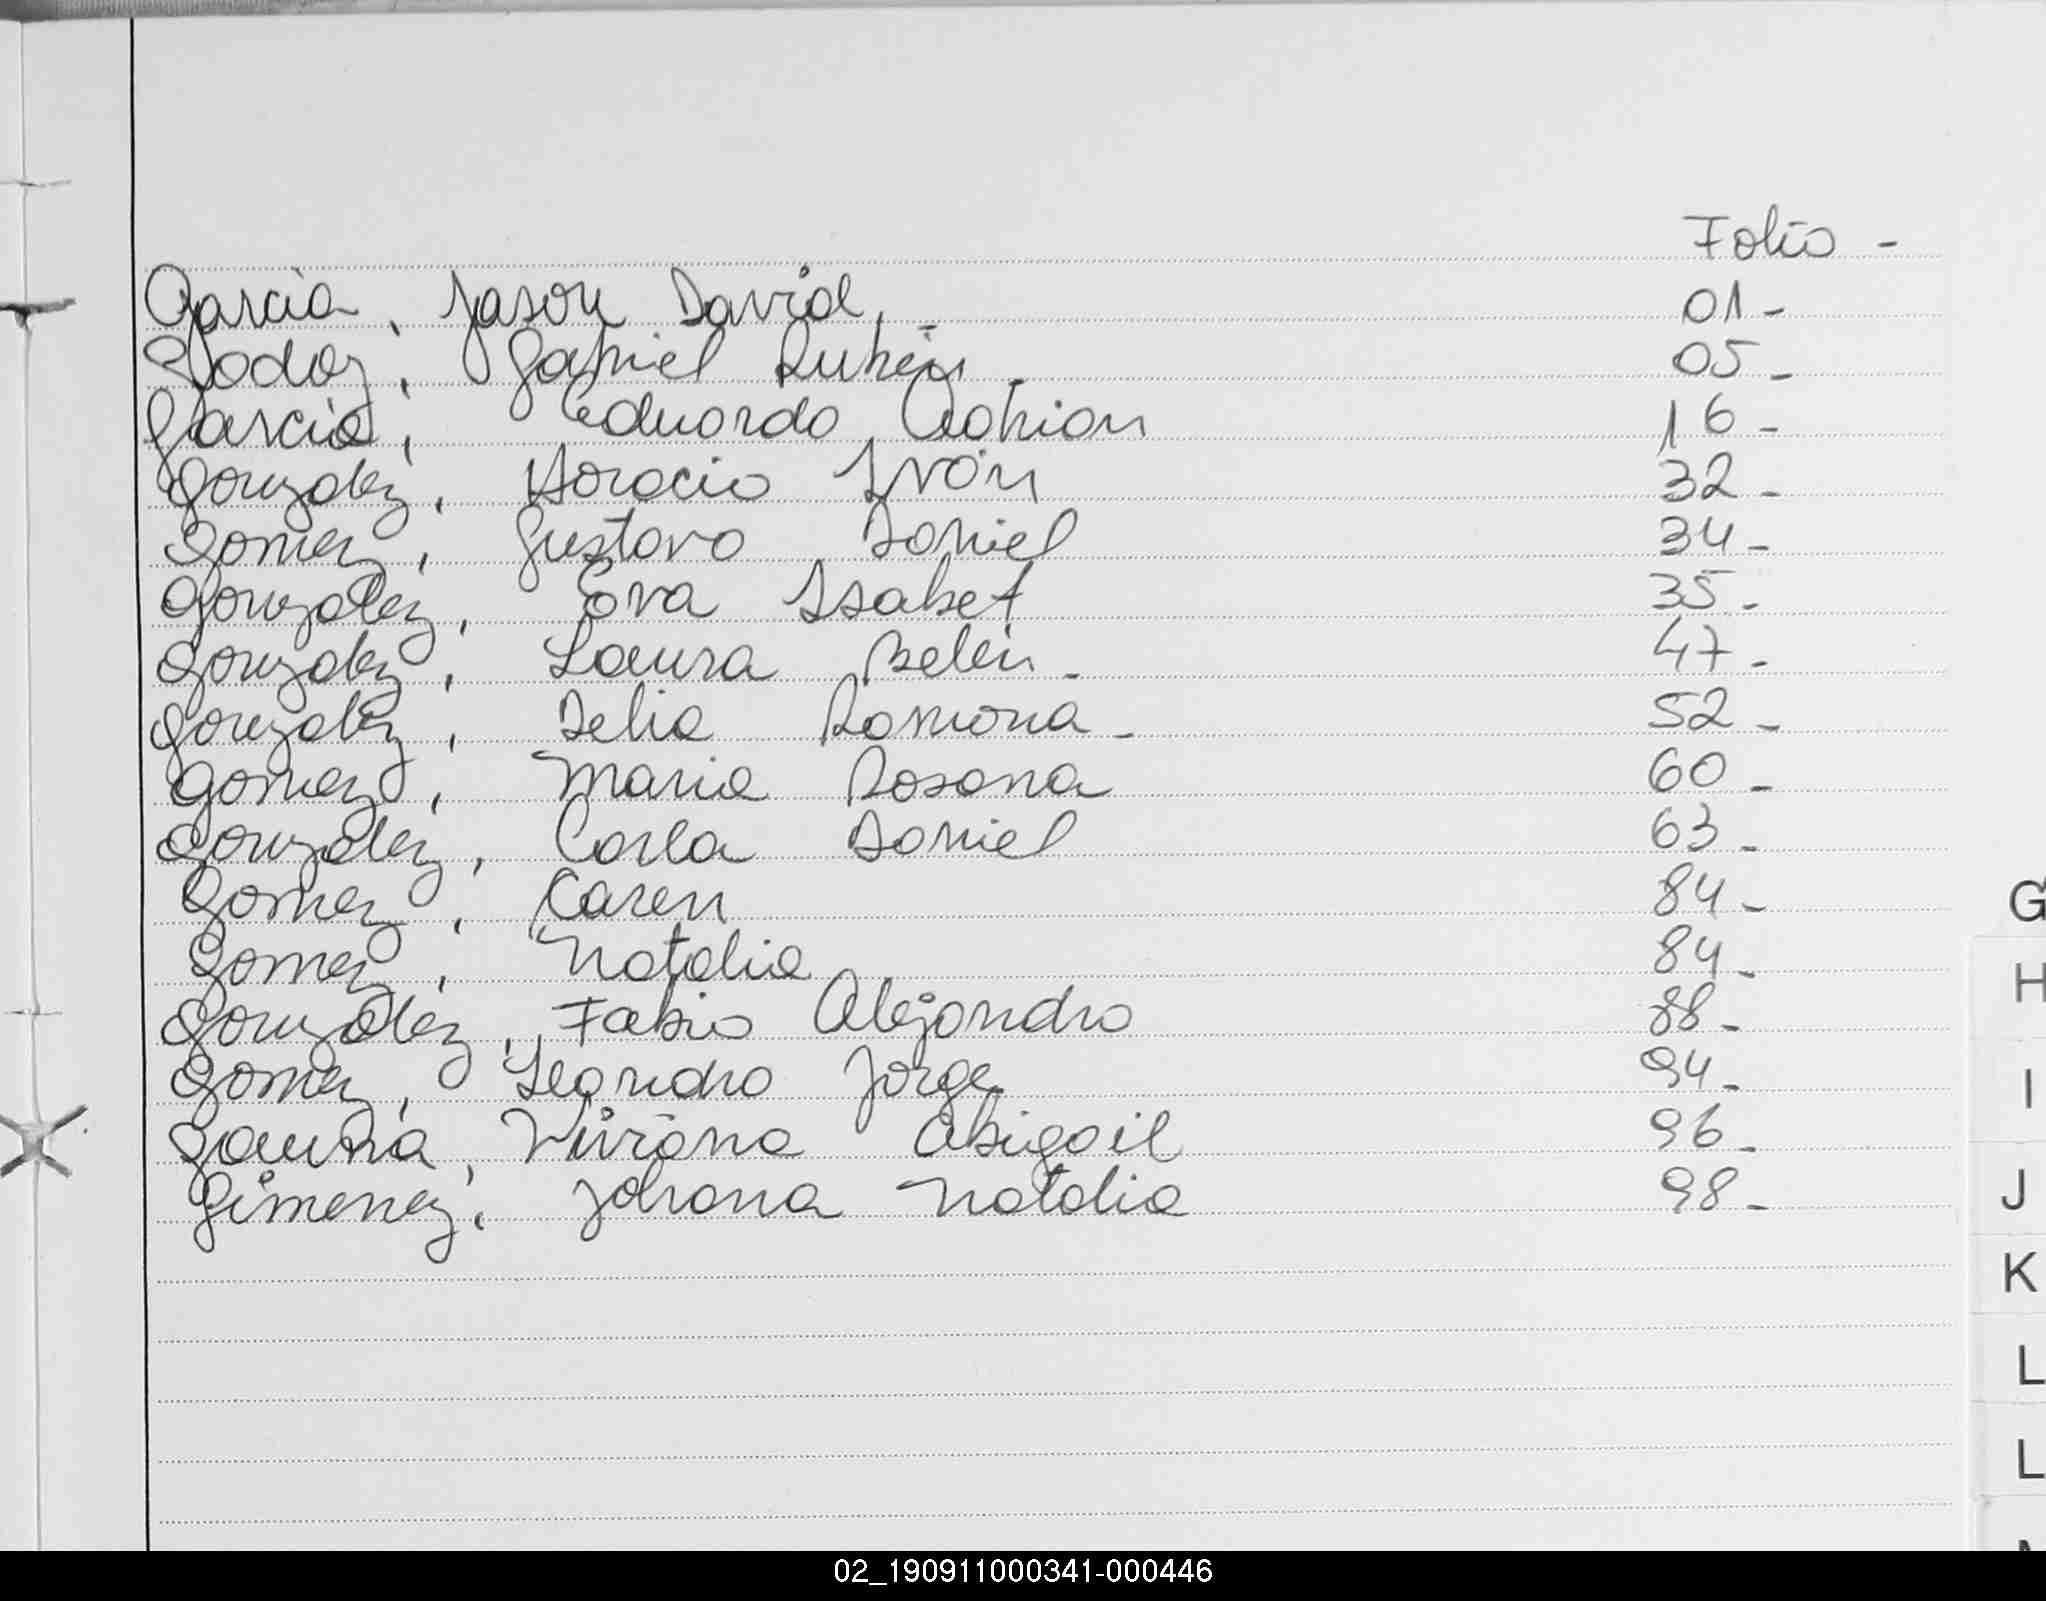 Folio -
Garcia, Jason David. - 01 -
Godoy, Gabriel Rubén - 05 -
Garcia, Eduardo Adrian 16 -
Gonzalez, Horacio Iván 32 -
Gomez, Gustavo Daniel 34 -
Gonzalez, Eva Isabet 35 -
Gonzalez, Laura Belén - 47 -
Gonzalez, Delia Ramona - 52 -
Gomez, Maria Rosana 60 -
Gonzalez, Carla Daniel 63 -
Gomez, Karen 84 -
Gomez, Natalia 84 -
Gonzalez, Fabio Alejandro 88 -
Gomez, Leandro Jorge 94 -
Gauna, Viviana Abigail 96 -
Gimenez, Johana Natalia 98 -
G
H
I
J
K
L
L
02_190911000341-000446